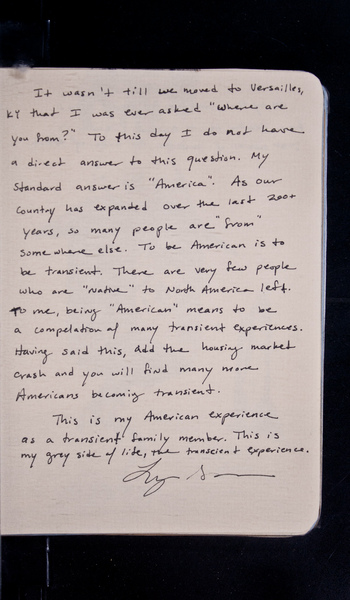 It wasn't till we moved to Versailles,
KY that I was ever asked "where are
you from?" To this day I do not have
a direct answer to this question. My
standard answer is "America". As our
country has expanded over the last 200+
years, so many people are "from"
somewhere else. To be American is to
be transient. There are very few people
who are "Native" to North America left.
To me, being "American" means to be
a compelation of many transient experiences.
Having said this, add the housing market
crash and you will find many more
Americans becoming transient.
This is my American experience
as a transient family member. This is
my grey side of life, the transcient experience.